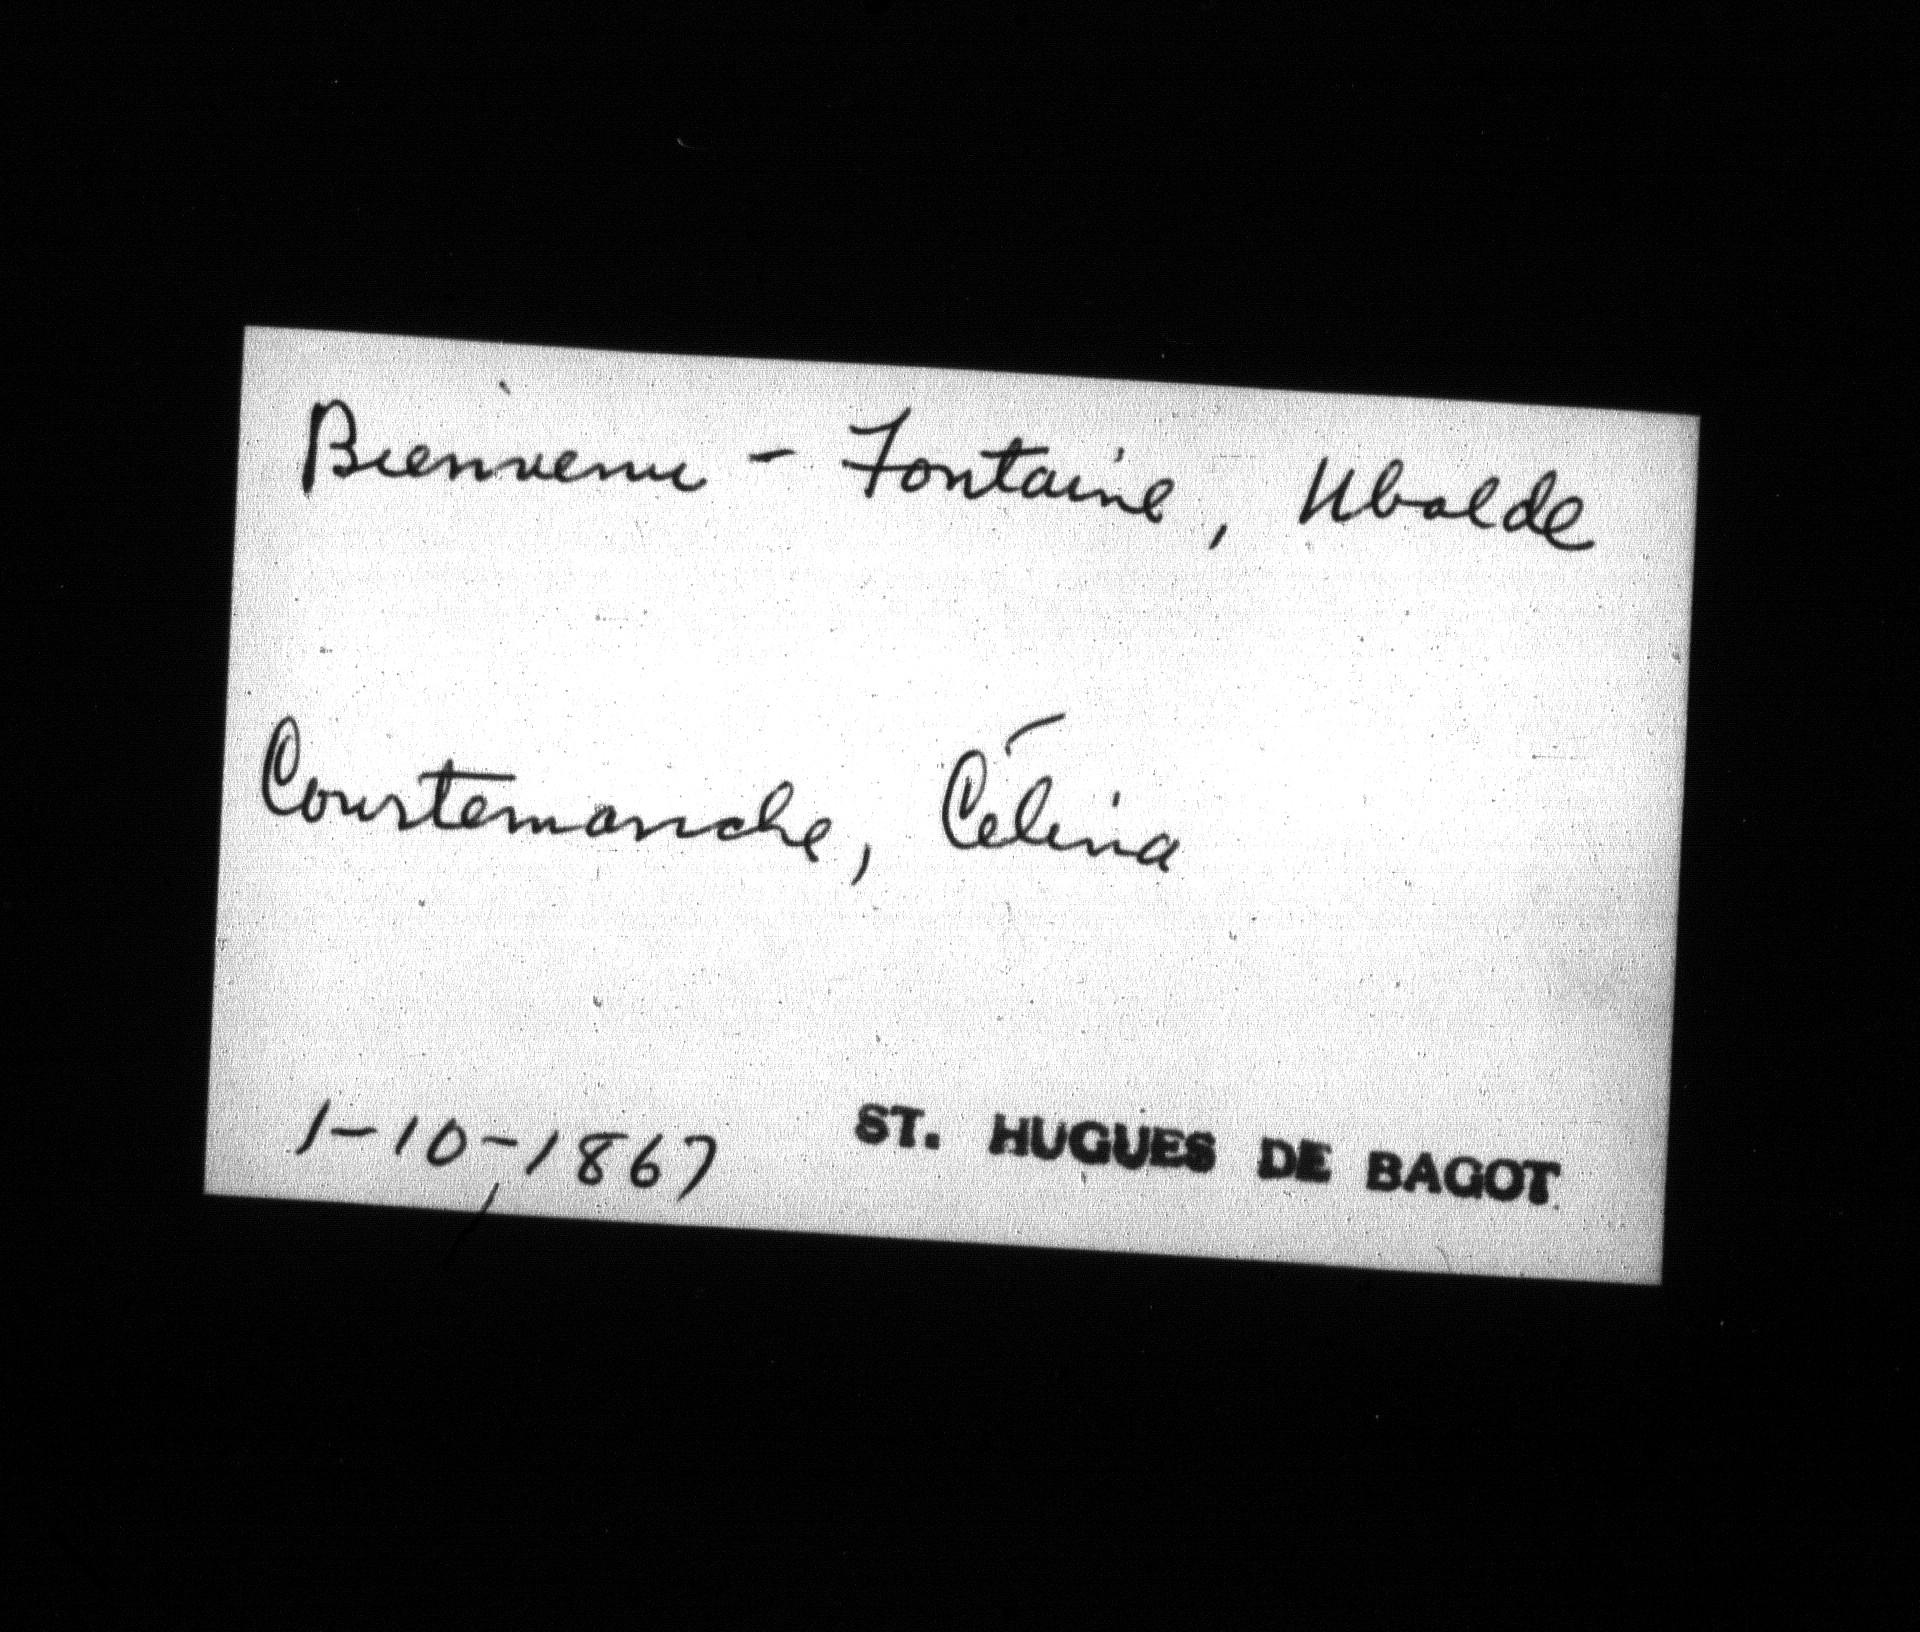 Bienvenu - Fontaine, Ubalde
Courtemanche, Célina
1-10-1867 ST. HUGUES DE BAGOT